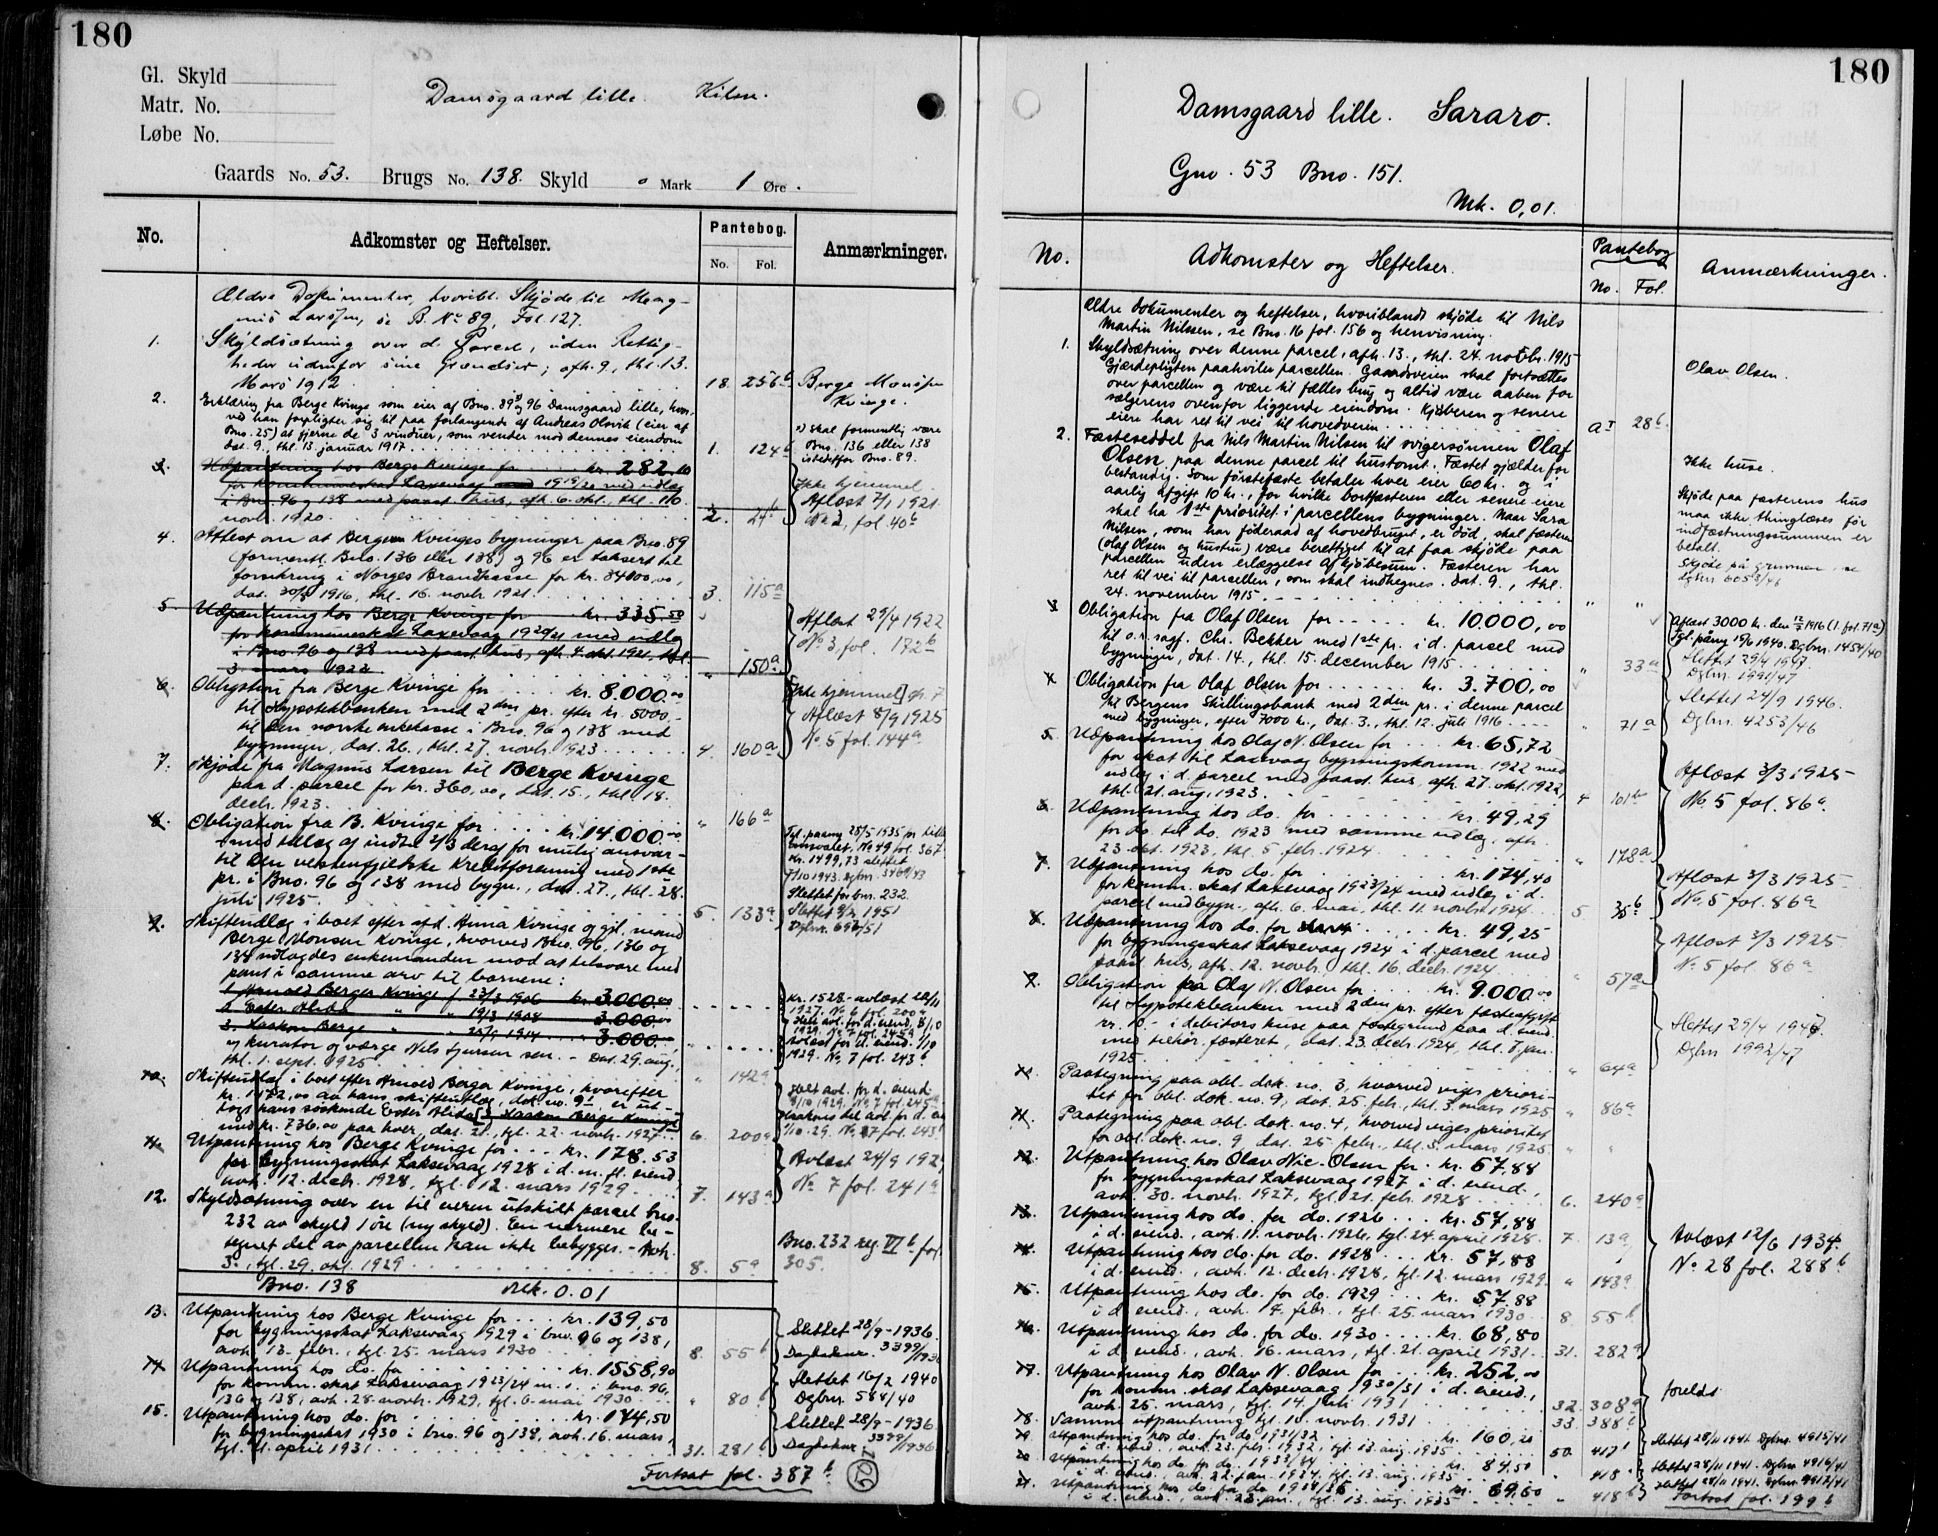 180
Gl. Skyld
Matr. No.
Løbe No.
Damsgaard lille. Kilen.
Gaards No. 53. Brugs No. 138. Skyld 0 Mark 1 Øre.
No. Adkomster og Heftelser. Pantebog. Anmærkninger.
No. Fol.
Ældre Dokumenter, hvoribl. Skjøde til Mag-
nus Larssen, se B. No 89, Fol. 127.
1. Skyldsætning over d. Parcel, uden Rettig-
heder udenfor sine Grændser; afh. 9., thl. 13.
Mars 1912 18. 256b Berge Monsen
Kvinge.
2. Erklæring fra Berge Kvinge som eier af Bno. 89 og 96 Damsgaard lille, hvor-
ved han forpligter sig til paa forlangende af Andreas Olsvik (eier af
Bno. 25) at fjerne de 3 vinduer, som vender mod dennes eiendom
dat. 9., thl. 13. januar 1917 1. 124b
skal formentlig være
Bno. 136 eller 138
istedetfor Bno. 89.
3. Udpantning hos Berge Kvinge for kr. 282,
for kommuneskat Laxevaag 1919/20 med udlæg
i Bno. 96 og 138 med paast. hus, afh. 6. okt., thl. 16.
novbr. 1920. 2. 24b
Ikke hjemmel.
Aflæst 7/1 1921.
No 2, fol. 40b
4. Attest om at Berge Kvinges bygninger paa Bno. 89
(formentl. Bno. 136 eller 138) og 96 er takseret til
forsikring i Norges Brandkasse for kr. 34000,00,
dat. 30/8 1916, thl. 16. novbr. 1921. 3. 115a
5. Udpantning hos Berge Kvinge for kr. 335,50
for kommuneskat Laxevaag 1920/21 med udlæg
i Bno. 96 og 138 med paast. hus, afh. 4. okt. 1921, thl.
3. mars 1922 " 150a
Aflæst 29/4 1922
No 3, fol. 172b
6. Obligation fra Berge Kvinge for kr. 8.000,00
til Hypotekbanken med 2den pr. efter kr. 5000,-
til Den norske enkekasse i Bno. 96 og 138 med
bygninger, dat. 26., thl. 27. novbr. 1923 4. 160a
Ikke hjemmel
Aflæst 8/9 1925
No 5 fol. 144a
7. Skjøde fra Magnus Larsen til Berge Kvinge
paa d. parcel for kr. 360,00, dat. 15., thl. 18.
decbr. 1923. " 166a
8. Obligation fra B. Kvinge for kr. 14.000,00
med tillæg af indtil 2/3 deraf for mulig ansvar
til Den vestenfjelske Kreditforening med 1ste
pr. i Bno. 96 og 138 med bygn., dat. 27., thl. 28.
juli 1925. 5. 133a
Slettet for bnr. 232.
9. Skifteudlæg i boet efter afd. Anna Kvinge og gjl. mand
Berge Monsen Kvinge, hvorved Bno. 96, 136 og
138 udlagdes enkemanden mod at tilsvare med
pant i samme arv til barnene:
1. Arnold Berger Kvinge f. 23/3 1906 kr. 3.000,00
2. Ester Alida " " 19/3 1908 3.000,00
3. Haakon Berge " " 1914 3.000,
v/ kurator og værge Nils Gjersen sen. - Dat. 29. aug.,
thl. 1. sept. 1925 " 142a
10. Skifteutlæg i boet efter Arnold Berger Kvinge, hvorefter
kr. 1472,00 av hans skifteutlæg, dok. no. 9 er ut-
lagt hans søskende Ester Alida og Haakon Berge Kvinge
med kr. 736,00 paa hver, dat. 21., tgl. 22. novbr. 1927. 6. 200a
11. Utpantning hos Berge Kvinge for kr. 178,53
for bygningsskat Laksevaag 1928 i d. m. fl. eiend.,
avh. 12. decbr. 1928, tgl. 12. mars 1929 7. 143a
No 7 fol. 241a
12. Skyldsætning over en til veien utskilt parcel bno.
232 av skyld 1 øre (ny skyld). En nærmere be-
tegnet del av parcellen kan ikke bebygges. - Avh.
3., tgl. 29. okt. 1929 8. 5a
Bno. 232 reg. VI b fol.
305.
Bno. 138 Mk. 0.01
13. Utpantning hos Berge Kvinge for kr. 139,50
for bygningsskat Laksevaag 1929 i bno. 96 og 138,
avh. 13. febr., tgl. 25. mars 1930 8. 55b
Slettet 28/9-1936.
Dagboknr. 3399/1936
14. Utpantning hos do. for kr. 1558,90
for komm. skat Laksevaag 1923/24 m. v. i bno. 96,
136 og 138, avh. 28. novbr. 1929, tgl. 6. mai 1930 " 80b
Slettet 16/2 1940
Dgbnr. 584/40
15. Utpantning hos do. for kr. 174,50
for bygningsskat 1930 i bno. 96 og 138, avh. 16. mars,
tgl. 21. april 1931 31. 281b
Slettet 28/9-1936
Dagboknr. 3399/1936
Fortsat fol. 387b
180
Damsgaard lille. Sararo.
Gno. 53 Bno. 151.
Mrk. 0,01.
No. Adkomster og Heftelser. Pantebog Anmærkninger.
No. Fol.
Ældre dokumenter og heftelser, hvoriblandt skjøde til Nils
Martin Nilssen, se Bno. 16 fol. 156 og henvisning.
1. Skyldsætning over denne parcel, afh. 13., thl. 24. novbr. 1915
Gjærdepligten paahviler parcellen. Gaardsveien skal fortsættes
over parcellen og være til fælles brug og altid være aaben for
sælgerens ovenfor liggende eiendom. Kjøberen og senere
eiere har ret til vei til hovedveien 28b
Olav Olsen.
2. Fæsteseddel fra Nils Martin Nilsen til svigersønnen Olaf
Olsen paa denne parcel til hustomt. Fæstet gjælder for
bestandig. Som førstefæste betaler hver eier 60 kr. og i
aarlig afgift 10 kr., for hvilke bortfæsteren eller senere eiere
skal ha 1ste prioritet i parcellens bygninger. Naar Sara
Nilsen, som har føderaad af hovedbruget, er død, skal fæsteren
(Olaf Olsen og hustru) være berettiget til at faa skjøde paa
parcellen uden erlæggelse af kjøbesum. Fæsteren har
ret til vei til parcellen, som skal indhegnes. Dat. 9., thl.
24. november 1915. " "
Ikke huse.
Skjøde paa fæsterens hus
maa ikke thinglæses før
indfæstningssummen er
betalt.
Skjøde på grunnen se
dgbnr 6053/46
3. Obligation fra Olaf Olsen for kr. 10.000,00
til o.r.sagf. Chr. Bekker med 1ste pr. i d. parcel med
bygninger, dat. 14., thl. 15. december 1915. " 33a
Aflæst 3000 kr. den 12/5 1916 (1. fol. 71a)
Tgl. påny 15/6 1940. Dgbnr. 1454/40
Slettet 29/4 1947.
Dgbnr. 1991/47
4. Obligation fra Olaf Olsen for kr. 3.700,00
til Bergens Skillingsbank med 2den pr. i denne parcel
med bygninger, efter 7000 kr., dat. 3., thl. 12. juli 1916. " 71a
Slettet 24/9 1946.
Dgbnr. 4253/46
5. Udpantning hos Olaf N. Olsen for kr. 65,72
for skat til Laxevaag bygningskomm. 1922 med
udlæg i d. parcel med paast. hus, afh. 27. okt. 1922,
thl. 21. aug. 1923. 4 101b
Aflæst 3/3 1925
No. 5 fol. 86a
6. Udpantning hos do. for kr. 49,29
for do. til do. 1923 med samme udlæg, afh.
23. okt. 1923, thl. 5. febr. 1924. " 178a
7. Utpantning hos do. for kr. 174,40
for komm. skat Laxevaag 1923/24 med udlæg i d.
parcel med bygn., afh. 6. mai, thl. 11. novbr. 1924 5. 35b
Aflæst 3/3 1925
No. 5 fol. 86a
8. Udpantning hos do. for kr. 49,25
for bygningsskat Laksevaag 1924 i d. parcel med
paast. hus, afh. 12. novbr., thl. 16. decbr. 1924 " 57a
Aflæst 3/3 1925
No. 5 fol. 86a
9. Obligation fra Olaf N. Olsen for kr. 9.000,00
til Hypotekbanken med 2den pr. efter fæsteafgift
kr. 10.- i debitors huse paa fæstegrund paa d. eiend.
med tilhør. fæsteret, dat. 23. decbr. 1924, thl. 7. jan.
1925 " 64a
Slettet 29/4 1947.
Dgbnr 1992/47
10. Paategning paa obl. dok. no. 3, hvorved viges priori-
tet for obl. dok. no. 9, dat. 25. febr., thl. 3. mars 1925 " 86a
11. Paategning paa obl. dok. no. 4, hvorved viges prioritet
for obl. dok. no. 9 dat. 25. febr., thl. 3. mars 1925. " "
12. Utpantning hos Olav Nic. Olsen for kr. 57,88
for bygningsskat Laksevaag 1927 i d. eiend.,
avh. 30. novbr. 1927, tgl. 21. febr. 1928 6. 240a
13. Utpantning hos do. for do. 1926 kr. 57,88
i d. eiend., avh. 11. novbr. 1926, tgl. 24. april 1928. 7. 13a
14. Utpantning hos do. for do. 1928 kr. 57,88
i d. eiend., avh. 12. decbr. 1928, tgl. 12. mars 1929 " 143a
15. Utpantning hos do. for do. 1929 kr. 57,88
i d. eiend., avh. 14. febr., tgl. 25. mars 1930 8. 55b
16. Utpantning hos do. for do. 1930 kr. 68,80
i d. eiend., avh. 16. mars, tgl. 21. april 1931. 31. 282a
Avlæst 12/6 1934.
No 28 fol. 288b
17. Utpantning hos Olav N. Olsen for kr. 252,00
for komm. skat Laksevaag 1930/31 i d. eiend.,
avh. 25. mars, tgl. 14. juli 1931 32. 308a
foreldt
18. Samme utpantning tgl. 10. novbr. 1931 33. 388b
19. Utpantning hos do. for do 1931/32 kr. 160,20
i d. eiend., avh. 23. febr. 1932, tgl. 13. aug. 1935 50. 417b
Slettet 28/11 1941. Dgbnr. 4915/41
20. Utpantning hos do. for do. 1933/34 kr. 84,50
i d. eiend., avh. 22. jan. 1934, tgl. 13. aug. 1935 " 418a
Slettet 28/11 1941. Dgbnr. 4916/41
21. Utpantning hos do for do 1934/35 kr. 69,60
i d. eiend., avh. 23. jan., tgl. 13. aug. 1935 " 418b
Slettet 28/11 1941. Dgbnr. 4912/41
Fortsat fol. 199b